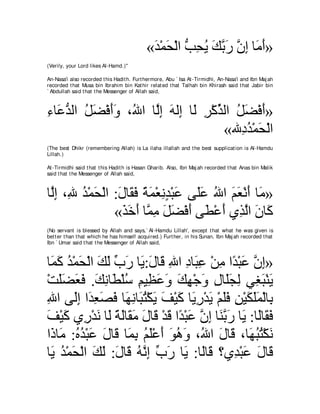 «أَمَا إِنَّ رَبَّكَ يُحِبُّ الْحَمْدَ»
(Verily, your Lord likes Al-Hamd.)"
An-Nasa'i also recorded this Hadith. Furthermore, Abu `Isa At-Tirmidhi, An-Nasa'i and Ibn Majah
recorded that Musa bin Ibrahim bin Kathir related that Talhah bin Khirash said that Jabir bin
`Abdullah said that the Messenger of Allah said,
«أَفْضَلُ الذِّكْرِ لَا إِلهَ إِلَّا اللهُ، وَأَفْضَلُ الدُّعَاءِ
الْحَمْدُدِلله»
(The best Dhikr (remembering Allah) is La ilaha illallah and the best supplication is Al-Hamdu
Lillah.)
At-Tirmidhi said that this Hadith is Hasan Gharib. Also, Ibn Majah recorded that Anas bin Malik
said that the Messenger of Allah said,
«مَا أَنْعَمَ اللهُ عَلَى عَبْدٍنِعْمَةً فَقَالَ: الْحَمْدُ للهِ، إِلَّا
كَانَ الَّذِي أَعْطَى أَفْضَلَ مِمَّا أَخَذَ»
(No servant is blessed by Allah and says, `Al-Hamdu Lillah', except that what he was given is
better than that which he has himself acquired.) Further, in his Sunan, Ibn Majah recorded that
Ibn `Umar said that the Messenger of Allah said,
«إِنَّ عَبْدًا مِنْ عِبَادِ اللهِ قَالَ:يَا رَبِّ لَكَ الْحَمْدُ كَمَا
يَنْبَغِي لِجَلَالِ وَجْهِكَ وَعَظِيمِ سُلْطَانِكَ. فَعَضَلَتْ
بِالْمَلَكَيْنِ فَلَمْ يَدْرِيَا كَيْفَ يَكْتُبَانِهَا فَصَعِدَا إِلَى اللهِ
فَقَالَا: يَا رَبَّنَا إِنَّ عَبْدًا قَدْ قَالَ مَقَالَةً لَا نَدْرِي كَيْفَ
نَكْتُبُهَا، قَالَ اللهُ، وَهُوَ أَعْلَمُ بِمَا قَالَ عَبْدُهُ: مَاذَا
قَالَ عَبْدِي؟ قَالَا: يَا رَبِّ إِنَّهُ قَالَ: لَكَ الْحَمْدُ يَا